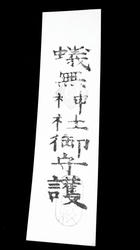 蟻無神社御守護